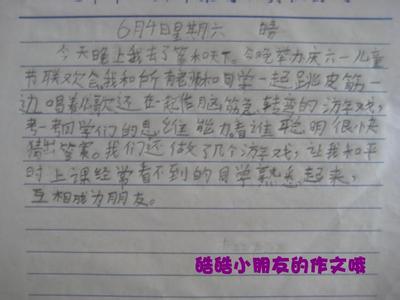 6月4日星期六 晴
今天晚上我去了笨和天下。今晚举办庆六一儿童
节联欢会。我和所有老师和同学一起跳皮筋一
边唱着儿歌还在一起作脑筋急转弯的游戏,
考一考同学们的思维能力看谁聪明很小快
猜出答案。我们还做了几个游戏,让我和平
时上课经常看不到的同学熟悉起来,
互相成为朋友。
皓皓小朋友的作文哦